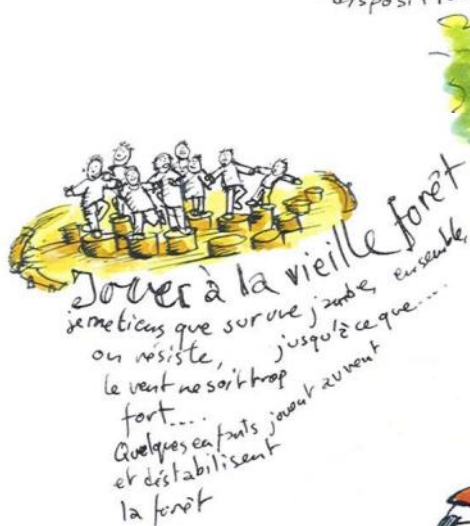 Jouer à la vieille forêt
je me tiens que sur une jambe, ensemble,
on résiste, jusqu'à ce que....
le vent ne soit trop
fort....
Quelques enfants jouent au vent
et déstabilisent
la forêt